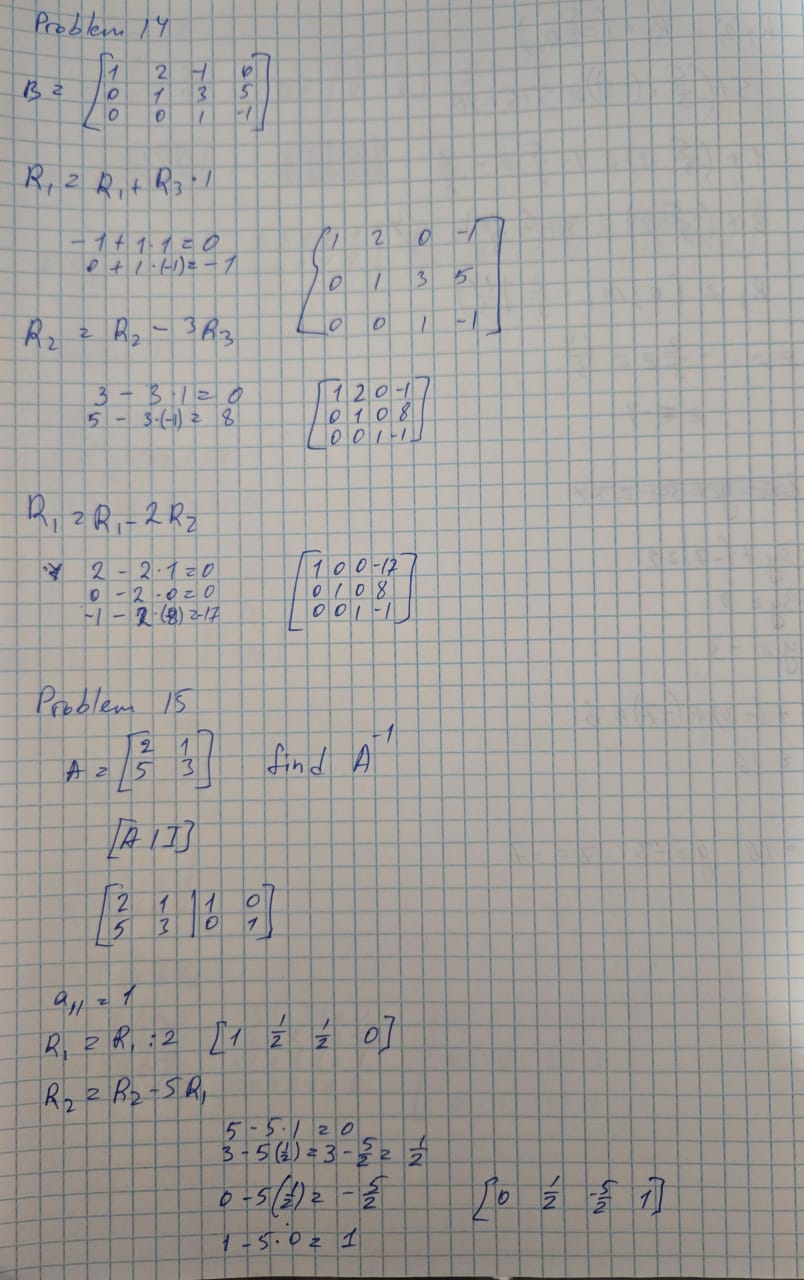 Problem 14
B = [1 2 -1 0
0 1 3 5
0 0 1 -1]
R₁ = R₁ + R₃ · 1
-1 + 1 · 1 = 0
0 + 1 · (-1) = -1
[1 2 0 -1
0 1 3 5
0 0 1 -1]
R₂ = R₂ - 3R₃
3 - 3 · 1 = 0
5 - 3·(-1) = 8
[1 2 0 -1
0 1 0 8
0 0 1 -1]
R₁ = R₁ - 2R₂
2 - 2 · 1 = 0
0 - 2 · 0 = 0
-1 - 2 · (8) = -17
[1 0 0 -17
0 1 0 8
0 0 1 -1]
Problem 15
A = [2 1
5 3] find A⁻¹
[A | I]
[2 1 | 1 0
5 3 | 0 1]
a₁₁ = 1
R₁ = R₁ : 2 [1 1/2 1/2 0]
R₂ = R₂ - 5R₁
5 - 5 · 1 = 0
3 - 5(1/2) = 3 - 5/2 = 1/2
0 - 5(1/2) = -5/2 [0 1/2 -5/2 1]
1 - 5 · 0 = 1